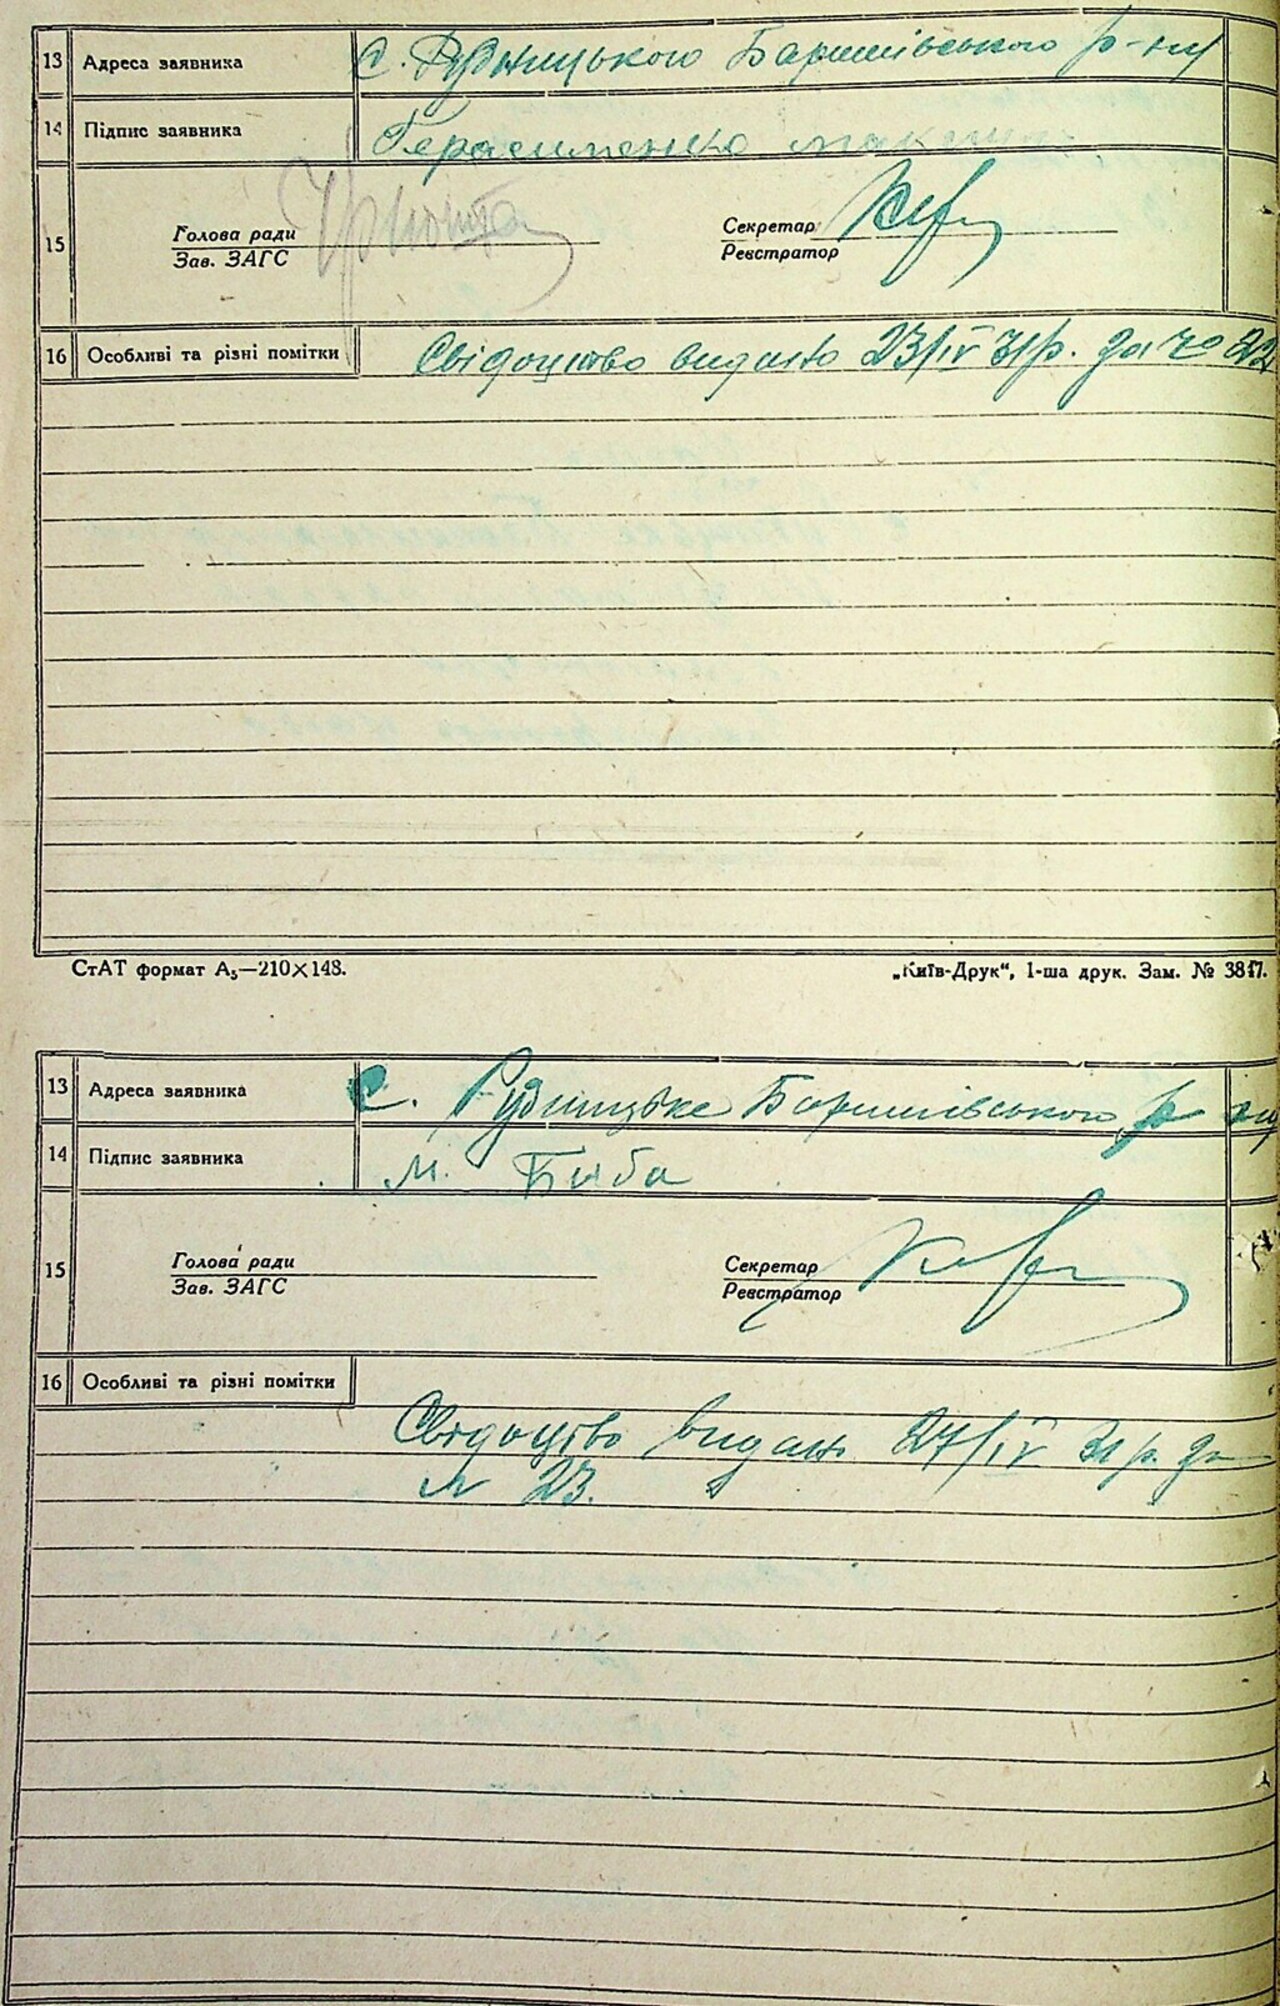 13 Адреса заявника С. Рудницького Баришівського р-ну
14 Підпис заявника Герасименко
15 Голова ради Секретар
Зав. ЗАГС Реєстратор
16 Особливі та різні помітки Свідоцтво видано 23/IV 31р. за № 22
СтАТ формат А₅—210×148. „Київ-Друк“, 1-ша друк. Зам. № 3847.
13 Адреса заявника С. Рудницьке Баришівського р ну
14 Підпис заявника М. Биба
15 Голова ради Секретар
Зав. ЗАГС Реєстратор
16 Особливі та різні помітки
Свідоцтво видано 27/IV 31р. за
№ 23.